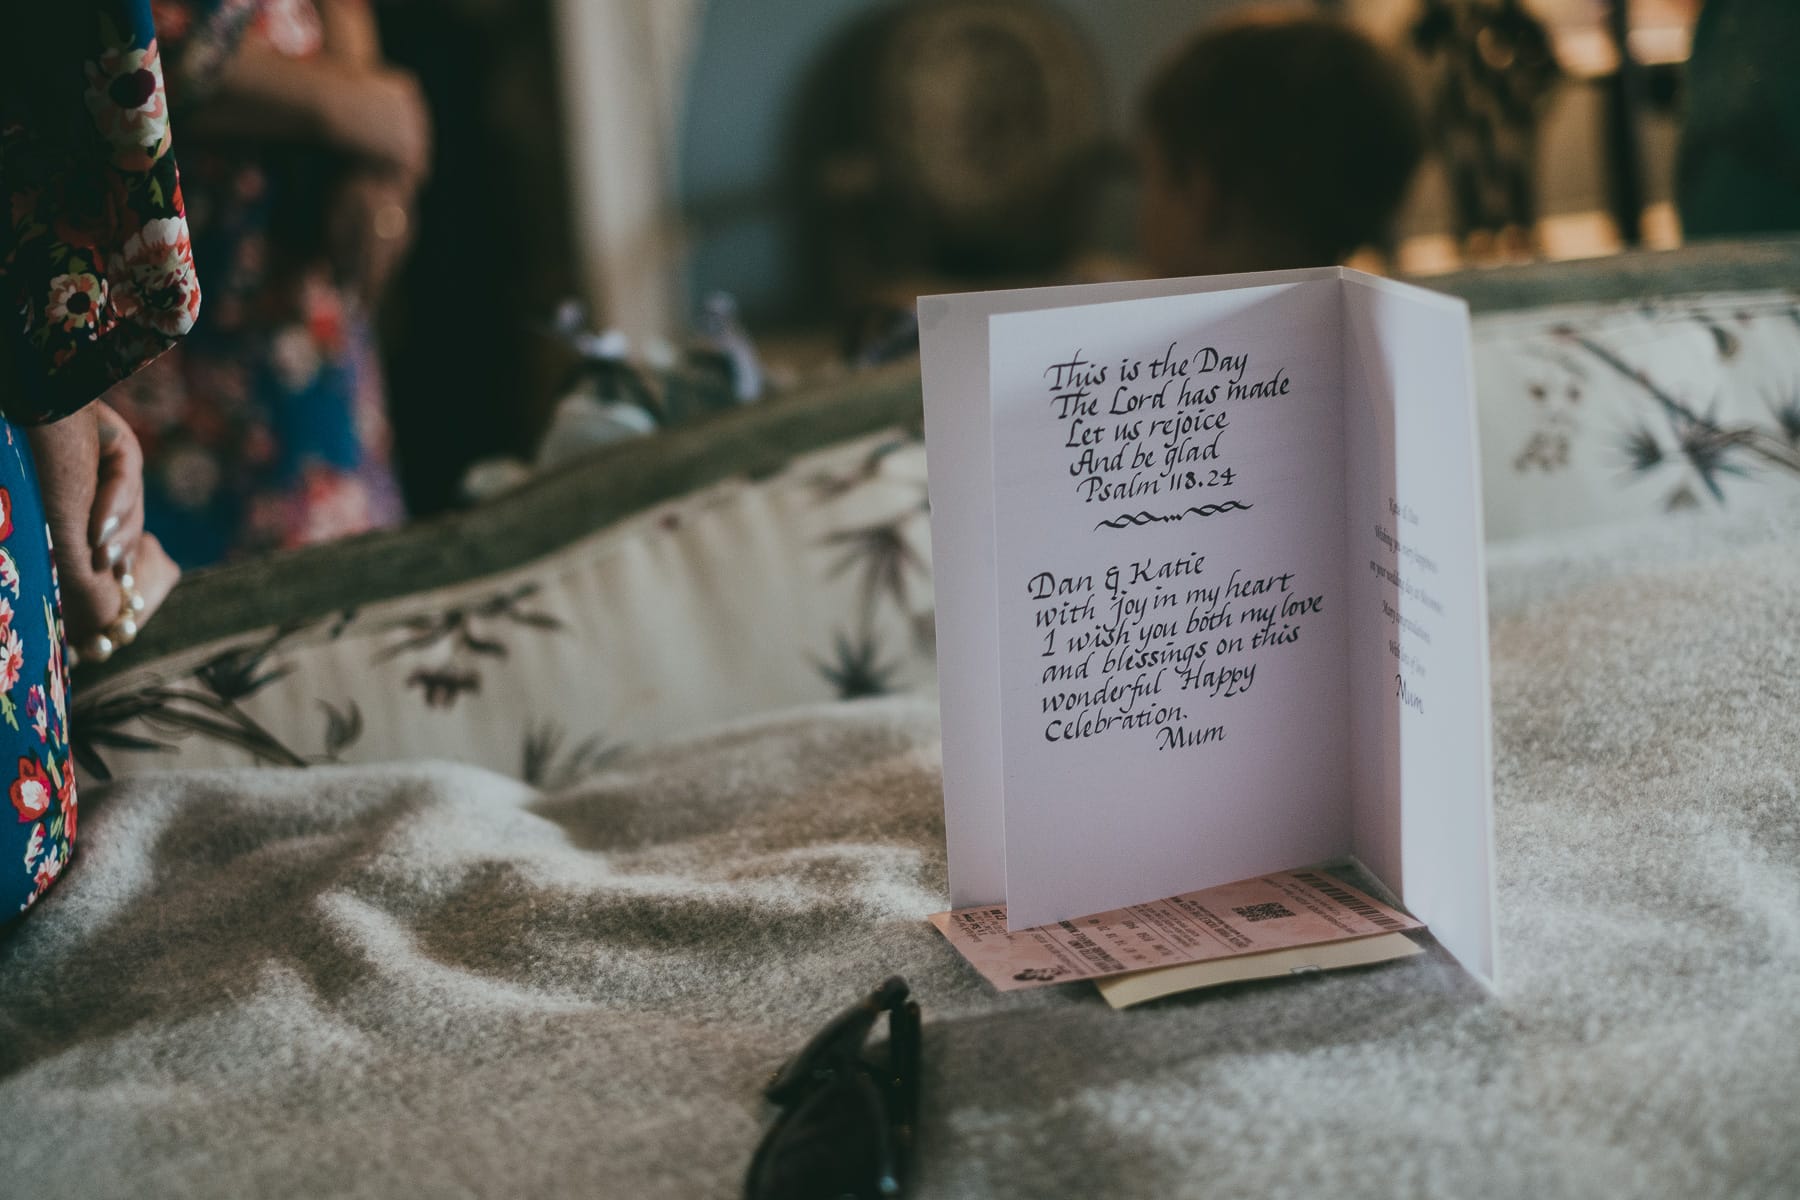 This is the Day
The Lord has made
Let us rejoice
And be glad
Psalm 118.24
Dan & Katie
with joy in my heart
I wish you both my love
and blessings on this
wonderful Happy
Celebration.
Mum
Wishing you every happiness
on your wedding day
Many congratulations
With lots of love
Mum